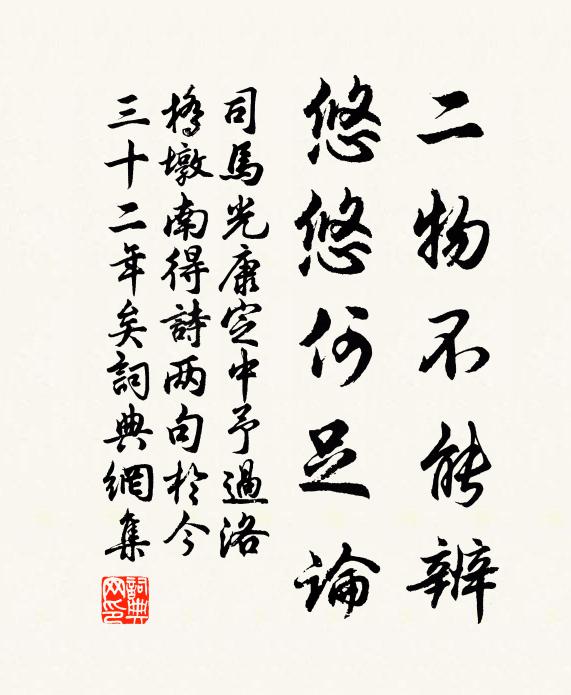 二物不能辨
悠悠何足論
司馬光康定中予過洛
橋墩南得詩两句於今
三十二年矣詞典網集
詞典网印